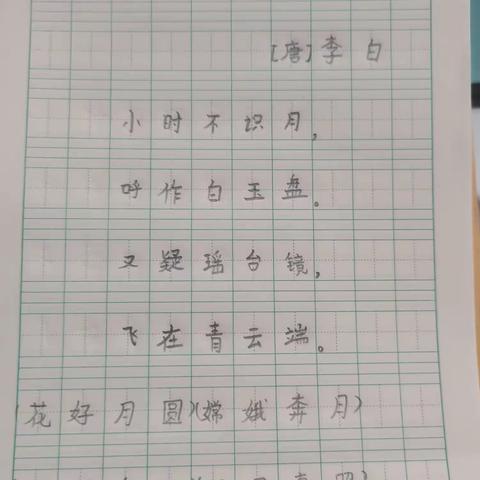 [唐]李白
小时不识月，
呼作白玉盘。
又疑瑶台镜，
飞在青云端。
(花好月圆)(嫦娥奔月)